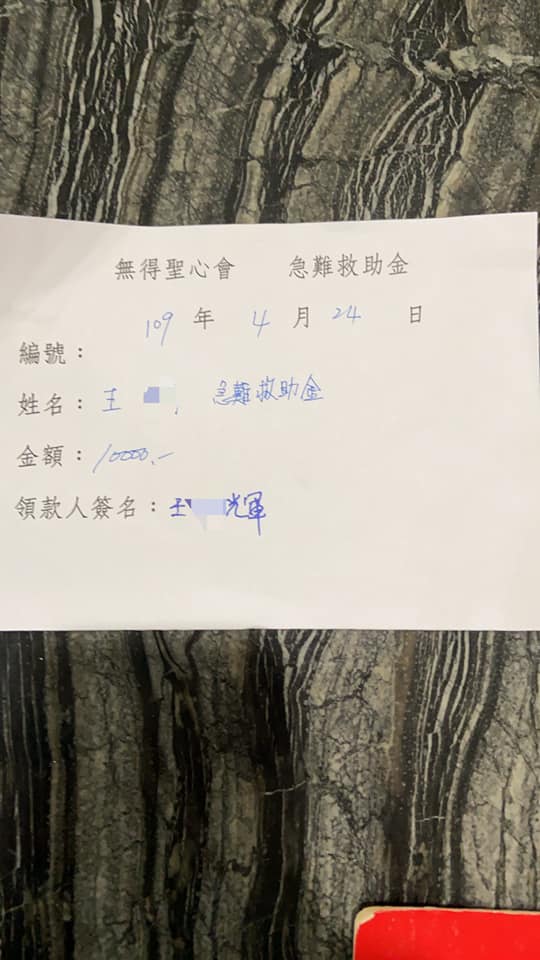 無得聖心會 急難救助金
109 年 4 月 24 日
編號：
姓名：王 急難救助金
金額：10000.-
領款人簽名：王 輝